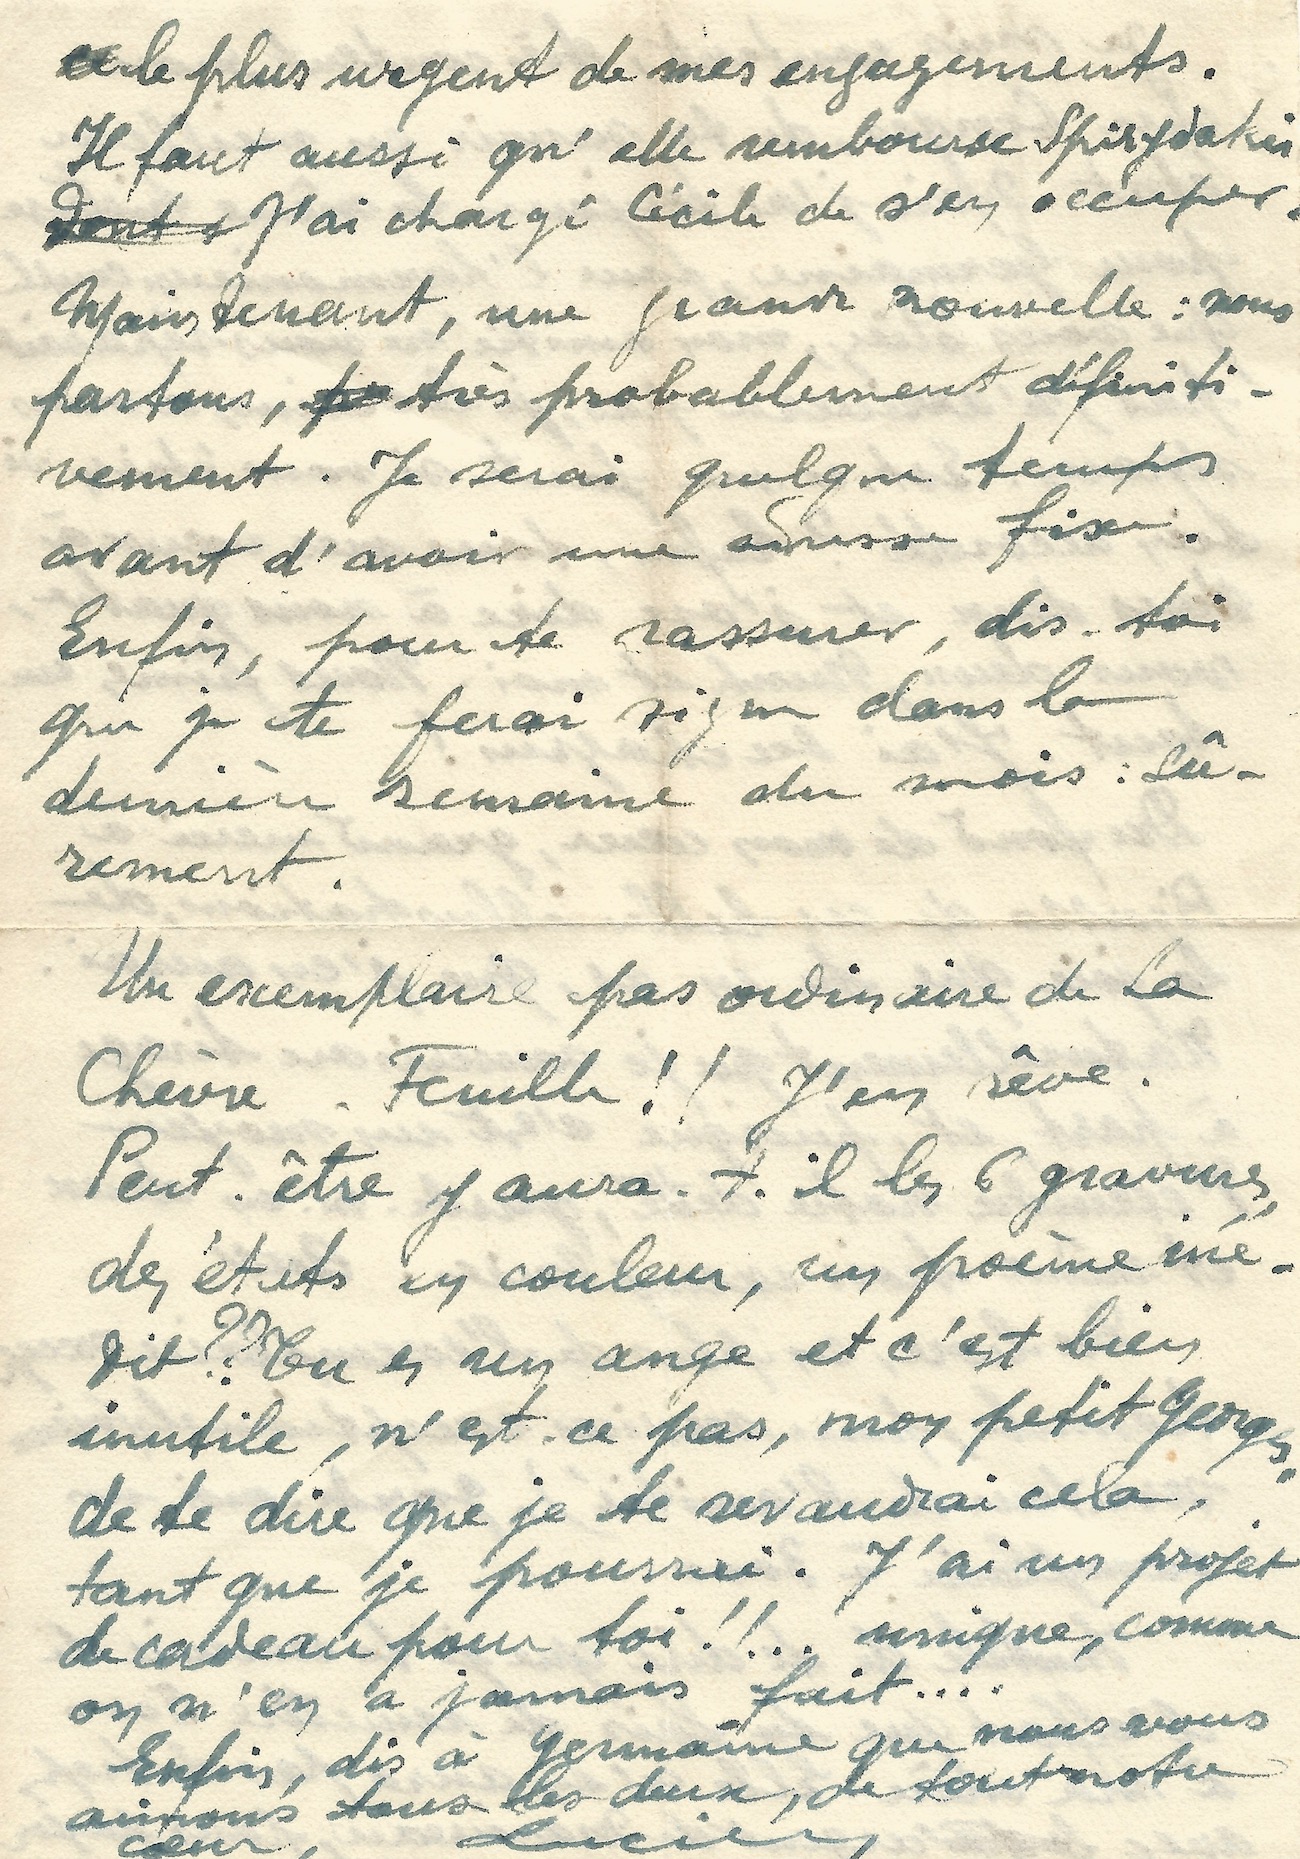 le plus urgent de mes engagements.
Il faut aussi qu'elle rembourse Spirydakis
dont J'ai chargé Cécile de s'en occuper.
Maintenant, une grande nouvelle : nous
partons, très probablement définiti-
vement. Je serai quelque temps
avant d'avoir une adresse fixe.
Enfin, pour te rassurer, dis-toi
que je te ferai signe dans la
dernière semaine du mois : sû-
rement.
Un exemplaire pas ordinaire de La
Chèvre-Feuille !! J'en rêve.
Peut-être y aura-t-il les 6 gravures,
des états en couleur, un poème iné-
dit?? Tu es un ange et c'est bien
inutile, n'est-ce pas, mon petit Georges,
de te dire que je te revaudrai cela,
tant que je pourrai. J'ai un projet
de cadeau pour toi !!.. unique, comme
on n'en a jamais fait....
Enfin, dis à Germaine que nous vous
aimons tous les deux, de tout notre
cœur,   Lucien